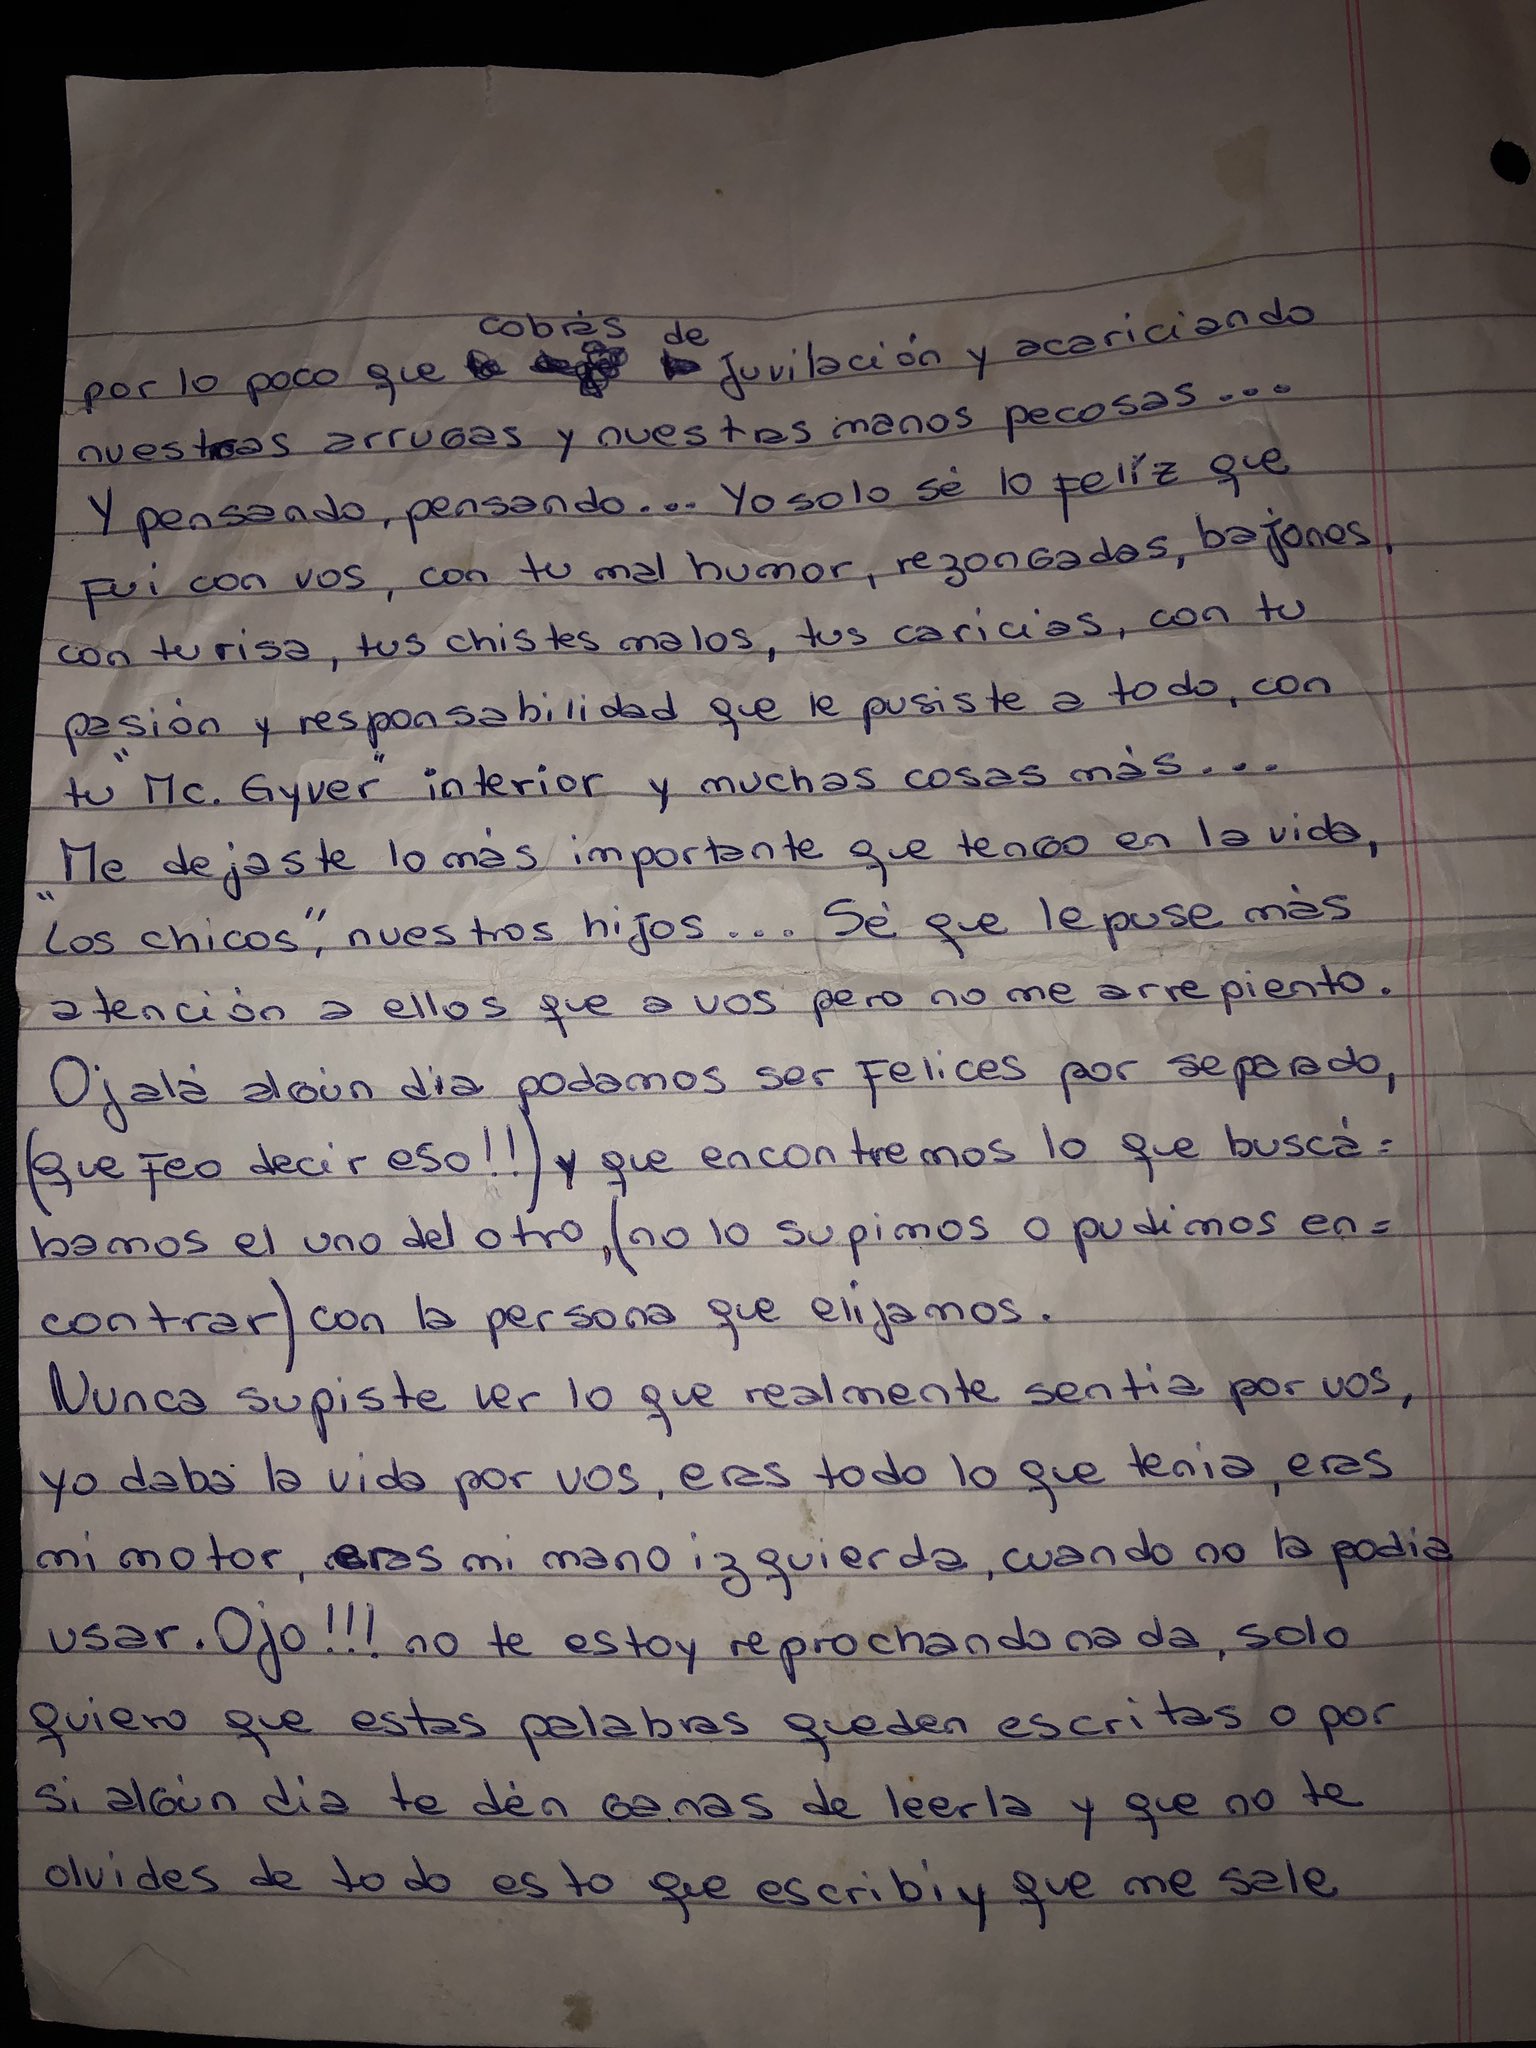 cobrás de
por lo poco que juvilación y acariciando
nuestras arrugas y nuestras manos pecosas...
Y pensando, pensando... Yo solo sé lo felíz que
fui con vos, con tu mal humor, rezongadas, bajones,
con tu risa, tus chistes malos, tus caricias, con tu
pasión y responsabilidad que le pusiste a todo, con
tu "Mc. Gyver" interior y muchas cosas más...
Me dejaste lo más importante que tengo en la vida,
"Los chicos", nuestros hijos... Sé que le puse más
atención a ellos que a vos pero no me arrepiento.
Ojalá algún dia podamos ser felices por separado,
(que feo decir eso!!) y que encontremos lo que buscá=
bamos el uno del otro, (no lo supimos o pudimos en=
contrar) con la persona que elijamos.
Nunca supiste ver lo que realmente sentia por vos,
yo daba la vida por vos, eras todo lo que tenia, eras
mi motor, eras mi mano izquierda, cuando no la podia
usar. Ojo!!! no te estoy reprochando nada, solo
quiero que estas palabras queden escritas o por
si algún dia te dén ganas de leerla y que no te
olvides de todo esto que escribi y que me sale